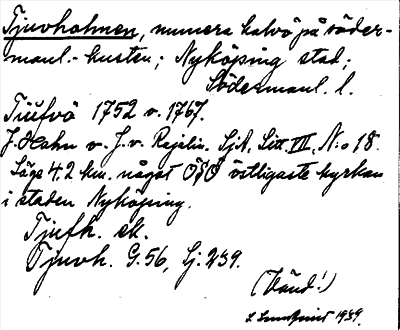 Tjuvholmen, numera halvö på söder-
manl.-kusten; Nyköping stad;
Södermanl. l.
Tiüfvö 1752 o. 1767.
J. Hahn o. J. v. Rajalin. SjA, Litt. VII, N:o 18.
Läge 4.2 km. något OSO östligaste kyrkan
i staden Nyköping.
Tjufh. ek.
Tjuvh. G. 56, Sj. 239.
(Vänd!)
1939.